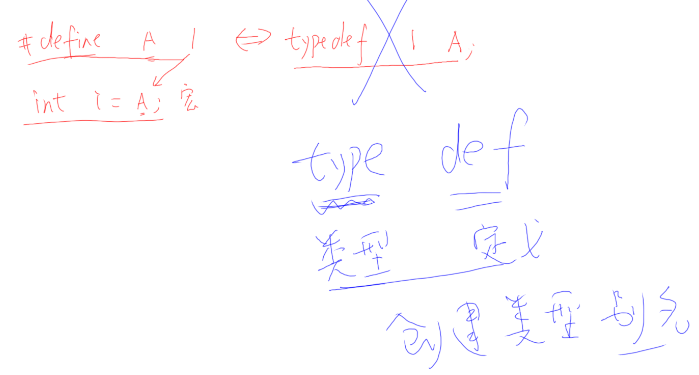 #define A 1 ⇔ typedef 1 A;
int i = A; 宏
type def
类型 定义
创建类型别名